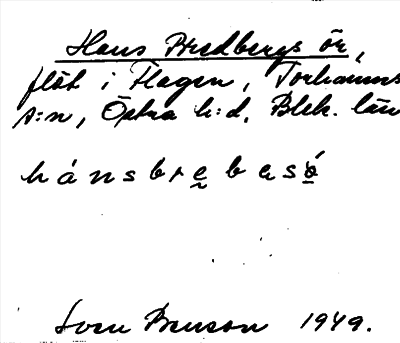 Hans Bredbergs ör,
flöt i Hagen, Torhamns
s:n, Östra h:d, Blek. län
hánsbrebasó
Sven Benson 1949.